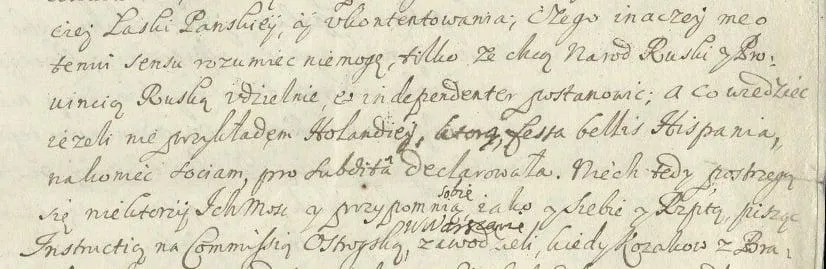 ciej Laski Panskiey, ÿ vkontentowania; Czego inaczey meo
tenui sensu rozumiec niemogę, tilko że chcą Narod Ruski y Pro-
vincią Ruską vdzielnie, et independenter postanowic; A co wiedziec
ieżeli nie przykładem Holandiey, ktorą, fessa bellis Hispania,
nakoniec sociam, pro subdita declarowała. Niech tedy, postrzegą
się niektorzÿ Ich Mosc y przypomnią sobie iako y Siebie y Rzptą, pisząc
w Warszawie
Instructią na Commissią Ostrogską, zawodzieli, kiedy Kozakow z Bra-